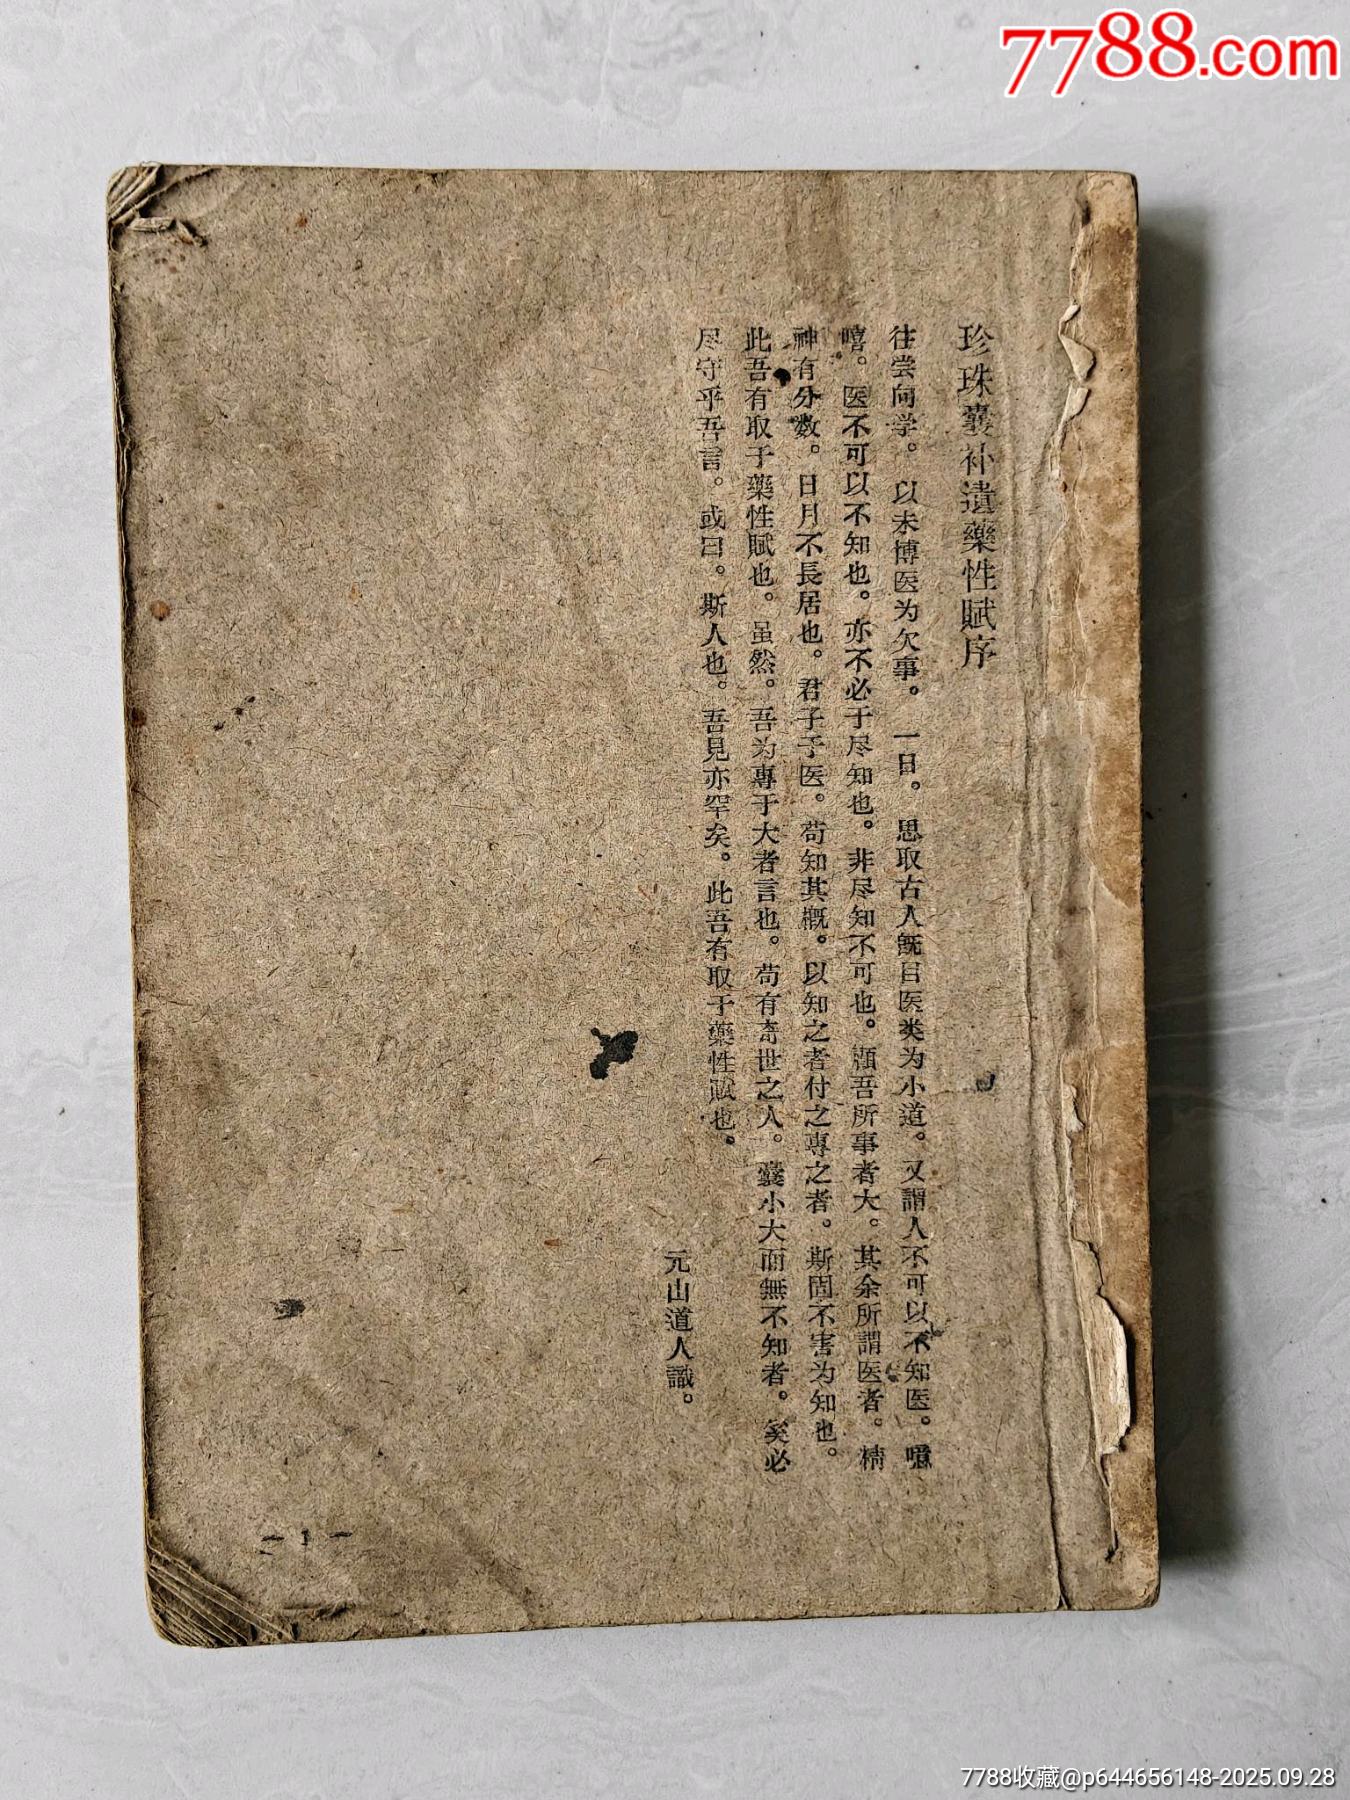 7788.com
珍珠囊补遺藥性賦序
往尝向学。以未博医为欠事。一日。思取古人既目医类为小道。又謂人不可以不知医。噫
嘻。医不可以不知也。亦不必于尽知也。非尽知不可也。顧吾所事者大。其余所謂医者。精
神有分数。日月不長居也。君子于医。苟知其概。以知之者付之專之者。斯固不害为知也。
此吾有取于藥性賦也。虽然。吾为專于大者言也。苟有奇世之人。囊小大而無不知者。奚必
尽守乎吾言。或曰。斯人也。吾見亦罕矣。此吾有取于藥性賦也。
元山道人識。
— 1 —
7788收藏@p644656148-2025.09.28